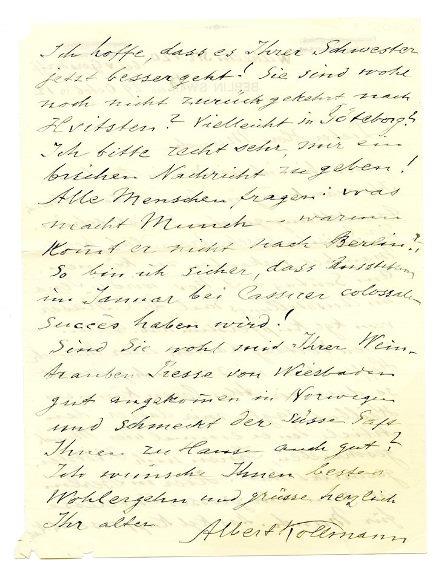 Ich hoffe, dass es Ihrer Schwester
jetzt besser geht! Sie sind wohl
noch nicht zurückgekehrt nach
Hvitsten? Vielleicht in Göteborg?
Ich bitte recht sehr, mir ein
bischen Nachricht zu geben!
Alle Menschen fragen: was
macht Munch - warum
komt er nicht nach Berlin?
So bin ich sicher, dass
im Januar bei Cassirer colossalen
Succès haben wird!
Sind Sie wohl mit Ihrer Wein-
trauben Presse von Wiesbaden
gut angekomen in Norwegen
und schmeckt der süsse Saft
Ihnen zu Hause auch gut?
Ich wünsche Ihnen bestes
Wohlergehn und grüsse herzlich
Ihr alter
Albert Kollmann